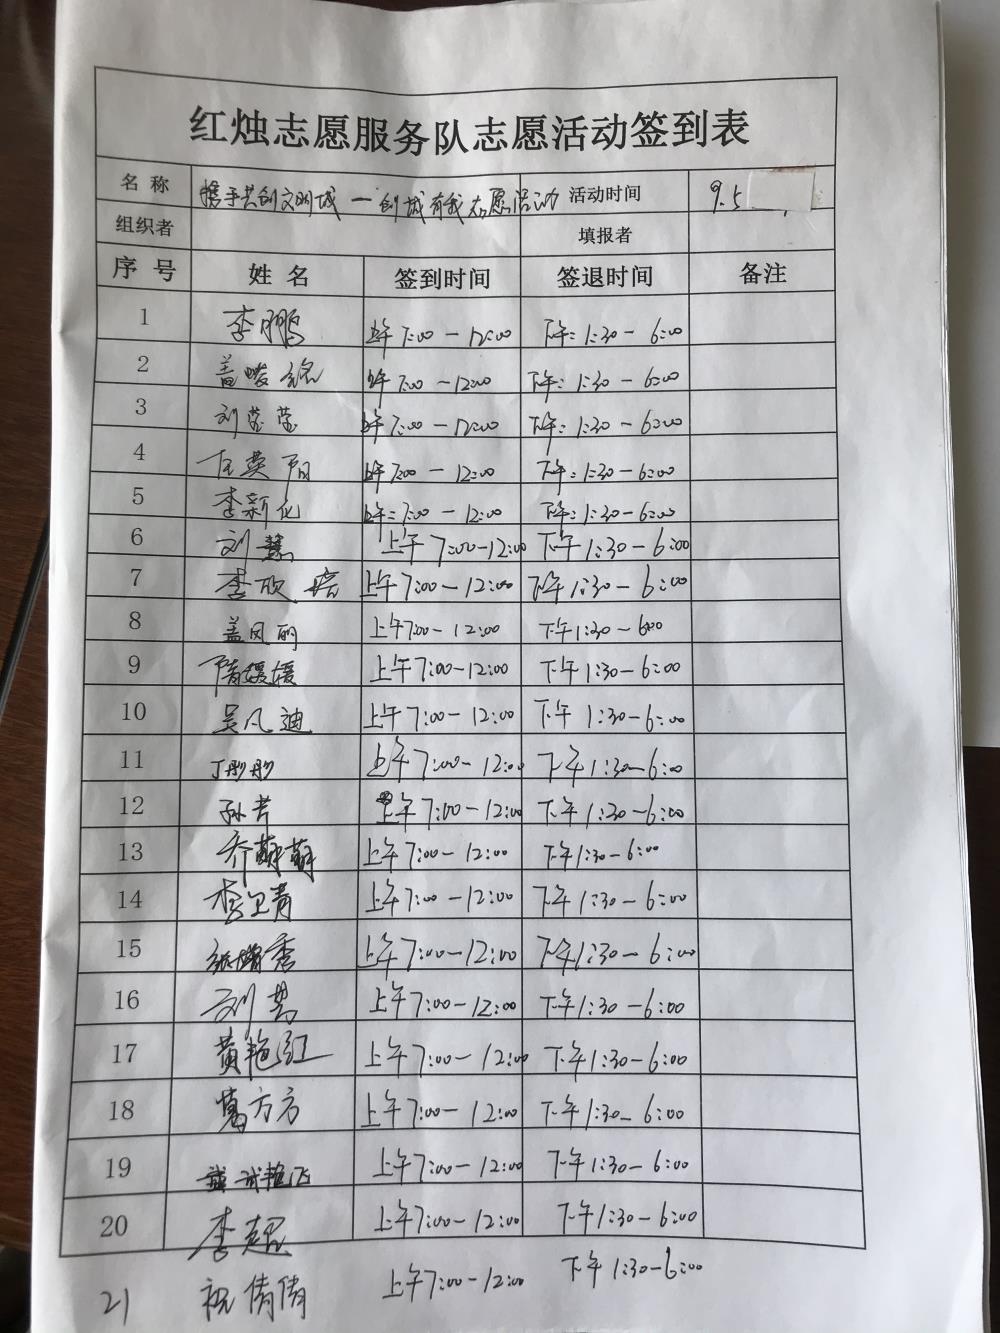 红烛志愿服务队志愿活动签到表
名 称 携手共创文明城 — 创城有我志愿活动 活动时间 9.5
组织者 填报者
序 号 姓 名 签到时间 签退时间 备注
1 李鹏 上午 7:00 — 12:00 下午: 1:30 — 6:00
2 盖峻铭 上午 7:00 — 12:00 下午: 1:30 — 6:00
3 刘莹莹 上午 7:00 — 12:00 下午: 1:30 — 6:00
4 上午 7:00 — 12:00 下午: 1:30 — 6:00
5 李新化 上午: 7:00 — 12:00 下午: 1:30 — 6:00
6 刘慧 上午 7:00 — 12:00 下午 1:30 — 6:00
7 李欣 上午 7:00 — 12:00 下午 1:30 — 6:00
8 盖凤丽 上午 7:00 — 12:00 下午 1:30 — 6:00
9 隋媛媛 上午 7:00 — 12:00 下午 1:30 — 6:00
10 吴凡迪 上午 7:00 — 12:00 下午 1:30 — 6:00
11 丁彤彤 上午 7:00 — 12:00 下午 1:30 — 6:00
12 孙芳 上午 7:00 — 12:00 下午 1:30 — 6:00
13 乔萌萌 上午 7:00 — 12:00 下午 1:30 — 6:00
14 李卫青 上午 7:00 — 12:00 下午 1:30 — 6:00
15 张增秀 上午 7:00 — 12:00 下午 1:30 — 6:00
16 上午 7:00 — 12:00 下午 1:30 — 6:00
17 黄艳红 上午 7:00 — 12:00 下午 1:30 — 6:00
18 葛方方 上午 7:00 — 12:00 下午 1:30 — 6:00
19 上午 7:00 — 12:00 下午 1:30 — 6:00
20 李超 上午 7:00 — 12:00 下午 1:30 — 6:00
21 祝倩倩 上午 7:00 — 12:00 下午 1:30 — 6:00